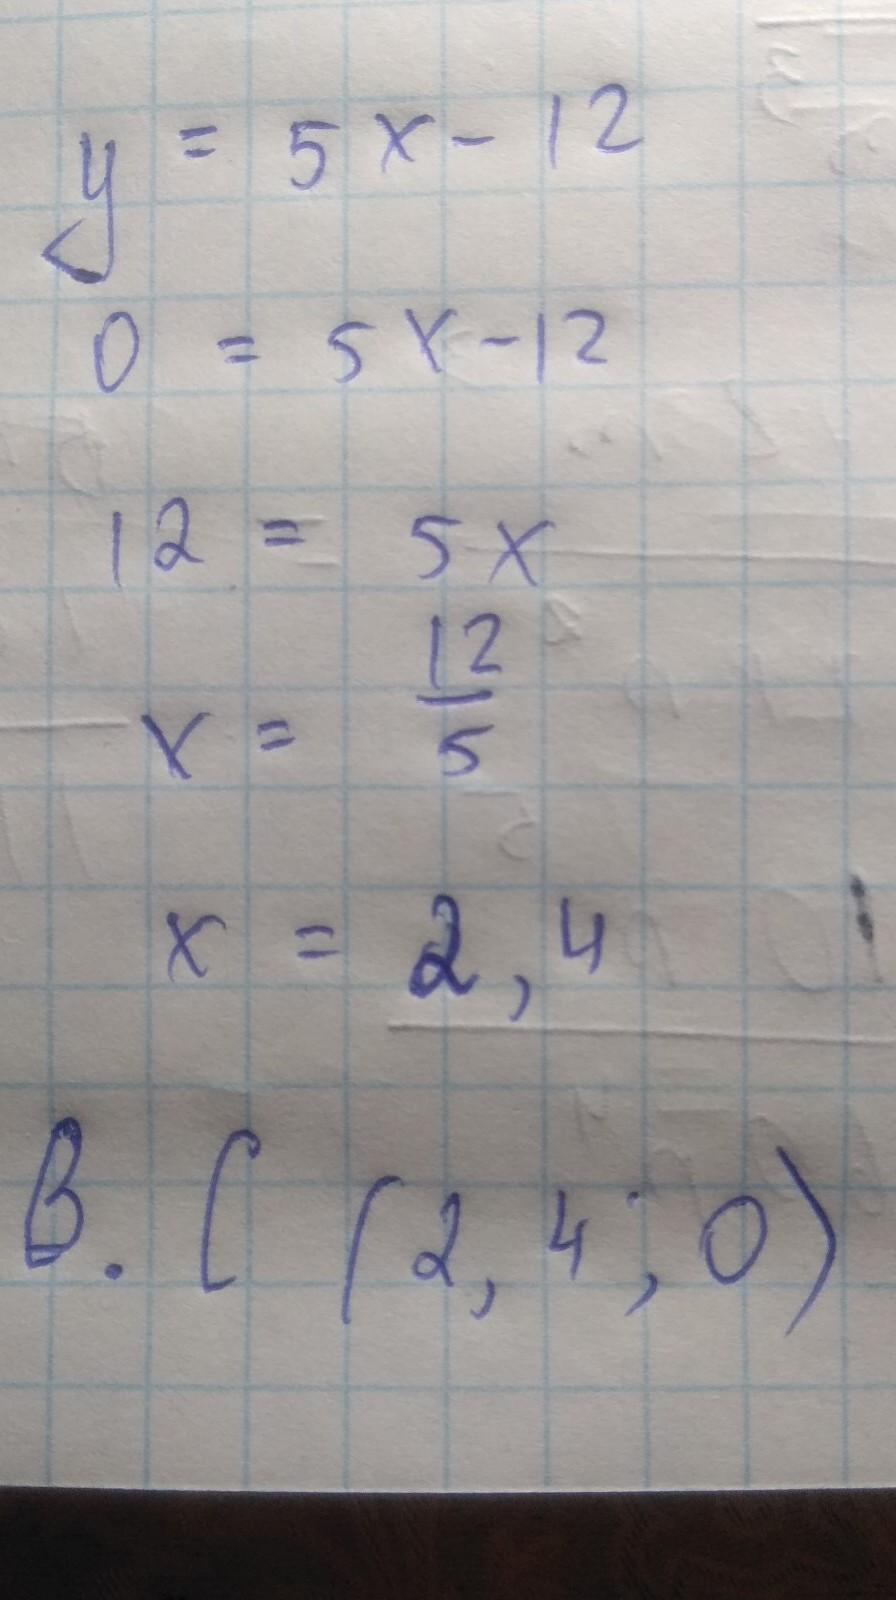 y = 5x - 12
0 = 5x - 12
12 = 5x
x = 12/5
x = 2,4
В. ( (2,4; 0)